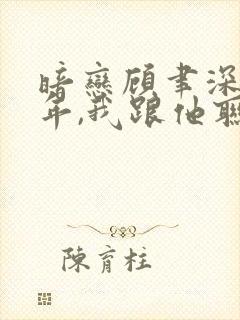 暗戀顧聿深
年,我跟他聯
陳育柱